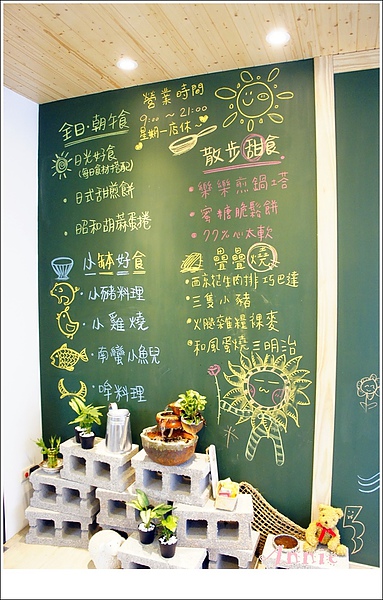 營業時間
9:00 ~ 21:00
星期一店休~
全日·朝午食
日光好食
(每日食材搭配)
·日式甜煎餅
·昭和胡蘿蛋捲
散步甜食
·樂樂煎鍋塔
·蜜糖脆鬆餅
·77%心太軟
小缽好食
小豬料理
·小雞燒
·南蠻小魚兒
·哞料理
疊疊燒
·西京花生肉排巧巴達
·三隻小豬
·火腿雜糧裸麥
·和風蛋燒三明治